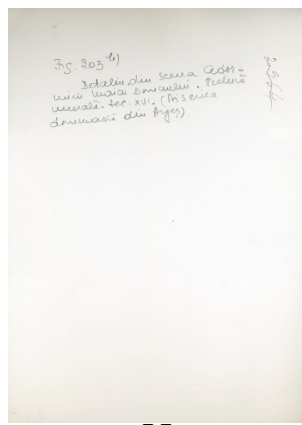 Fg. 203-b)
Detaliu din scena Ador=
mirii Maicii Domnului. Pictură
murală. sec. XVI. (Biserica
domnească din Argeș)